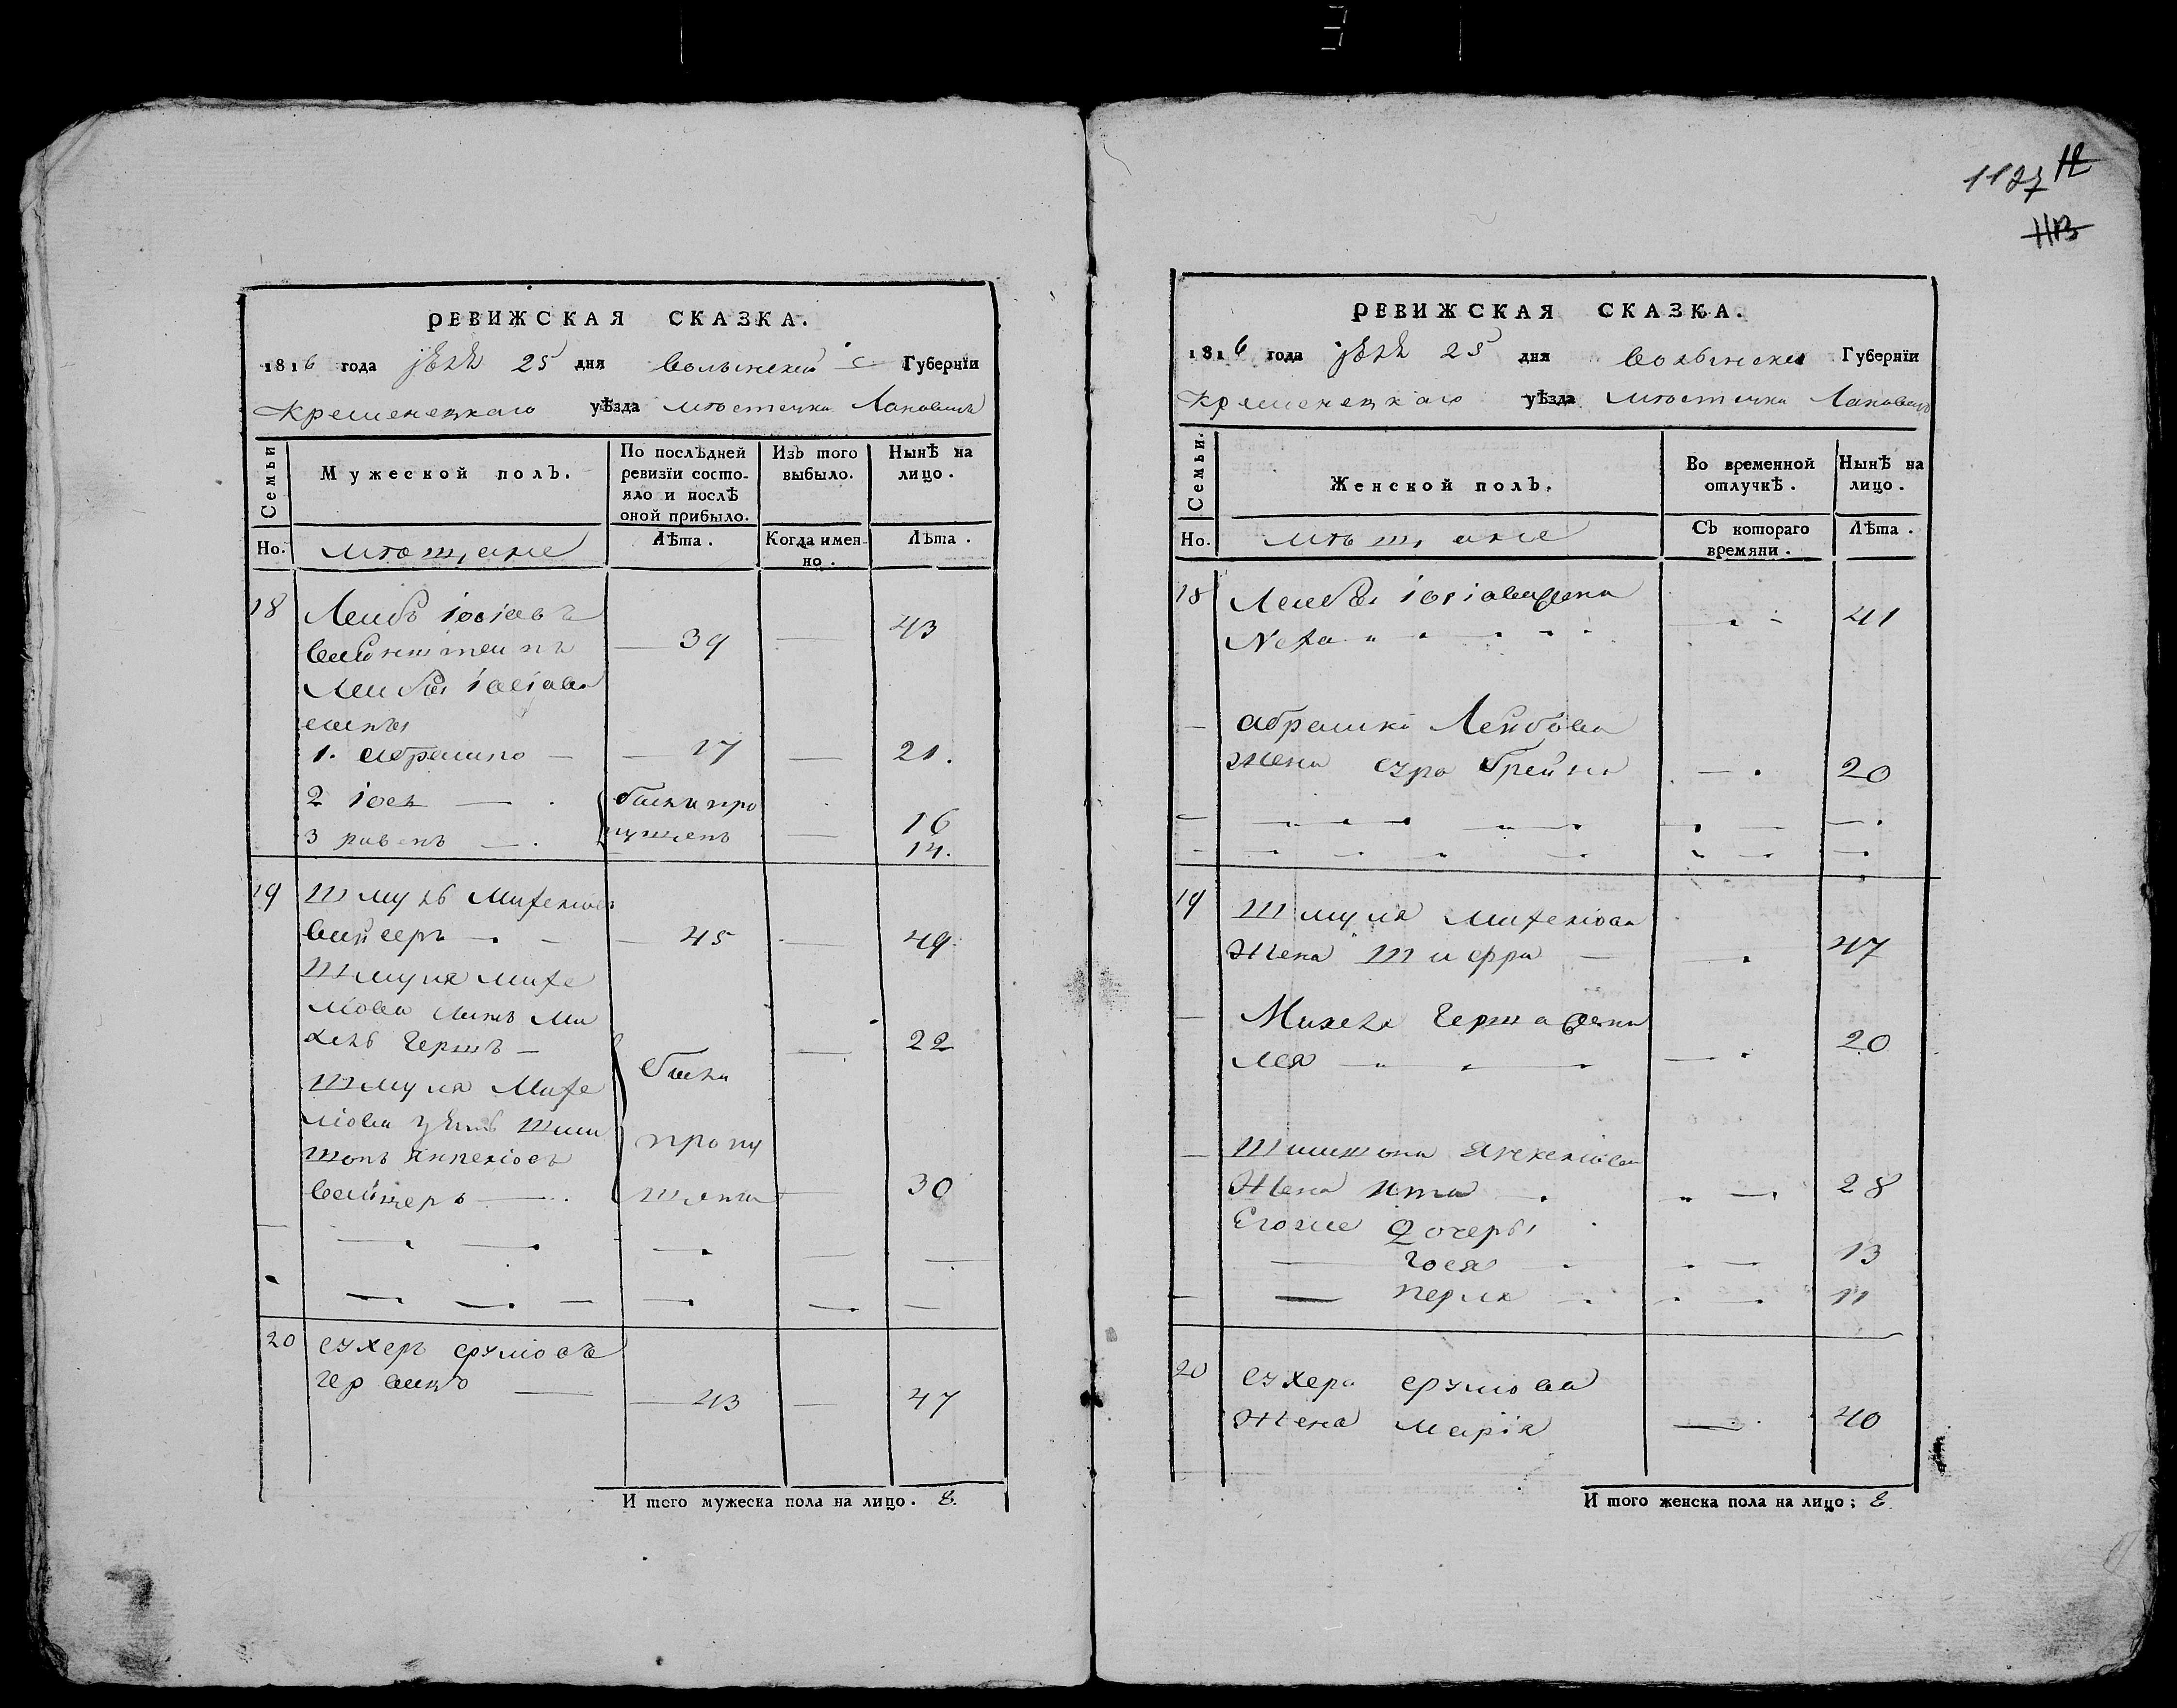 1127
РЕВИЖСКАЯ СКАЗКА.
1816 года 25 дня Волынской Губернїи
Кременецкаго уѣзда мѣстечка Лановецъ
Семьи
Мужеской полъ.
По послѣдней ревизїи состо-
яло и послѣ
оной прибыло.
Изъ того выбыло.
Нынѣ на лицо.
Но.
мѣщане
Лѣта.
Когда имен-
но.
Лѣта.
18 Лейбъ Іосіовъ
— 39 — 43
Лейбы Іосіова
сыны
1. Абрамко — — 17 — 21.
2 Іось — . были про
16
3 рувенъ — . пущены — 14.
19 Шмуль Михелюв
Вайсеръ — 45 — 49
Шмуля Михе
люва сынъ Ми
хель Гершъ — 22
Шмуля Михе были
люва зять Шим
шонъ Янкелювъ пропу
— . щены 30
20 Сухеръ Срулювъ
— 43 — 47
И того мужеска пола на лицо. 8.
РЕВИЖСКАЯ СКАЗКА.
1816 года 25 дня Волынской Губернїи
Кременецкаго уѣзда мѣстечка Лановецъ
Семьи.
Женской полъ.
Во временной отлучкѣ.
Нынѣ на лицо.
Но.
мѣщане
Съ котораго
времяни.
Лѣта.
18 Лейбы Іосіова жена
Неха 41
— Абрамка Лейбова
жена Сура Брейна 20
19 Шмуля Михелюва
жена Шифра — 47
— Михеля Герша жена
Лея — 20
— Шимшона Янкелюва
жена Ита 28
Егоже дочери
— Гося 13
— Перля 11
20 Сухера Срулюва
жена Марія 40
И того женска пола на лицо; 8.